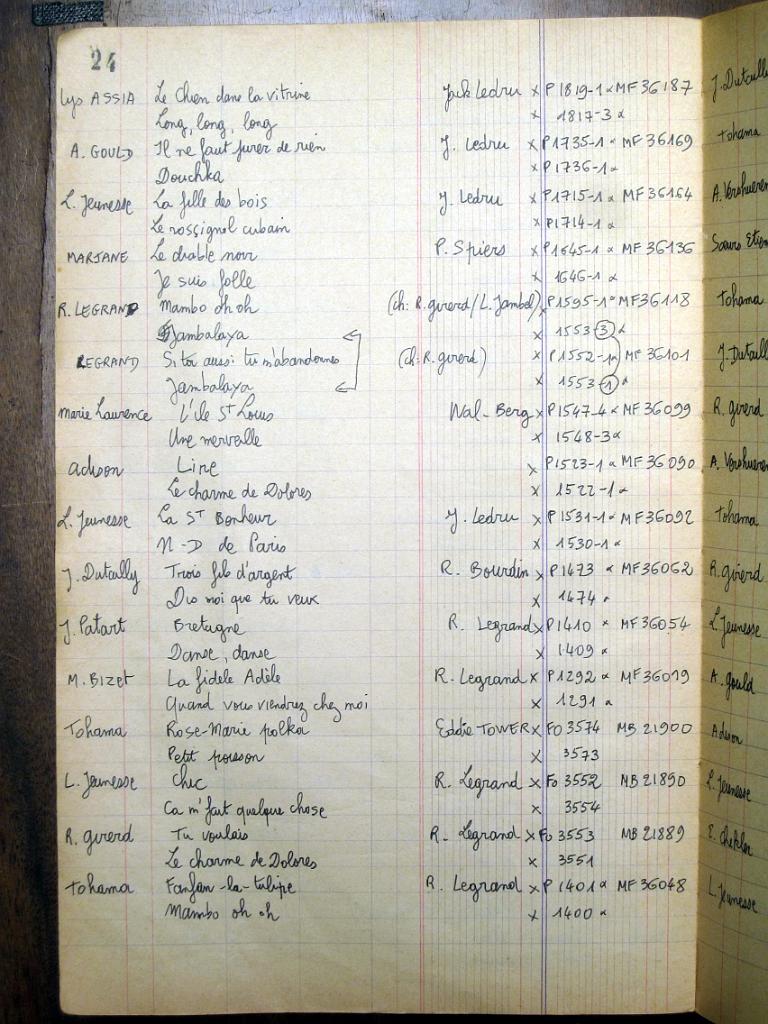 24
Lys ASSIA Le Chien dans la vitrine Jack Ledru x P 1819-1 α MF 36187
Long, long, long x 1817-3 α
A. GOULD Il ne faut jurer de rien J. Ledru x P1735-1 α MF 36169
Douchka x P1736-1 α
L. Jeunesse La fille des bois J. Ledru x P1715-1 α MF 36164
Le rossignol cubain x P1714-1 α
MARJANE Le diable noir P. Spiers x P1645-1 α MF 36136
Je suis folle x 1646-1 α
R. LEGRAND Mambo oh oh (ch: R. girerd / L. Jambel) x P1595-1 α MF 36118
Jambalaya x 1553-3 α
LEGRAND Si toi aussi tu m'abandonnes (ch: R. girerd) x P1552-1 α MF 36101
Jambalaya x 1553-1 α
Marie Laurence L'île St Louis Wal-Berg x P1547-4 α MF 36099
Une merveille x 1548-3 α
adison Line x P1523-1 α MF 36090
Le charme de Dolores x 1522-1 α
L. Jeunesse La St Bonheur J. Ledru x P 1531-1 α MF 36092
N-D de Paris x 1530-1 α
J. Dutailly Trois fils d'argent R. Bourdin x P1473 α MF36062
Dis moi que tu veux x 1474 α
J. Patart Bretagne R. Legrand x P1410 α MF 36054
Danse, danse x 1409 α
M. Bizet La fidèle Adèle R. Legrand x P1292 α MF36019
Quand vous viendrez chez moi x 1291 α
Tohama Rose-Marie polka Eddie TOWER x FO 3574 MB 21900
Petit poisson x 3573
L. Jeunesse Chic R. Legrand x Fo 3552 MB 21890
Ca m'fait quelque chose x 3554
R. girerd Tu voulais R. Legrand x Fo 3553 MB 21889
Le charme de Dolores x 3551
Tohama Fanfan-la-tulipe R. Legrand x P 1401 α MF 36048
Mambo oh oh x 1400 α
J. Dutailly
Tohama
A. Vershueren
Soeurs Etien
Tohama
J. Dutaill
R. girerd
A. Vershueren
Tohama
R. girerd
L. Jeunesse
A. gould
Adison
L. Jeunesse
L. Jeunesse